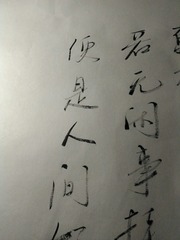 若无闲事挂
便是人间